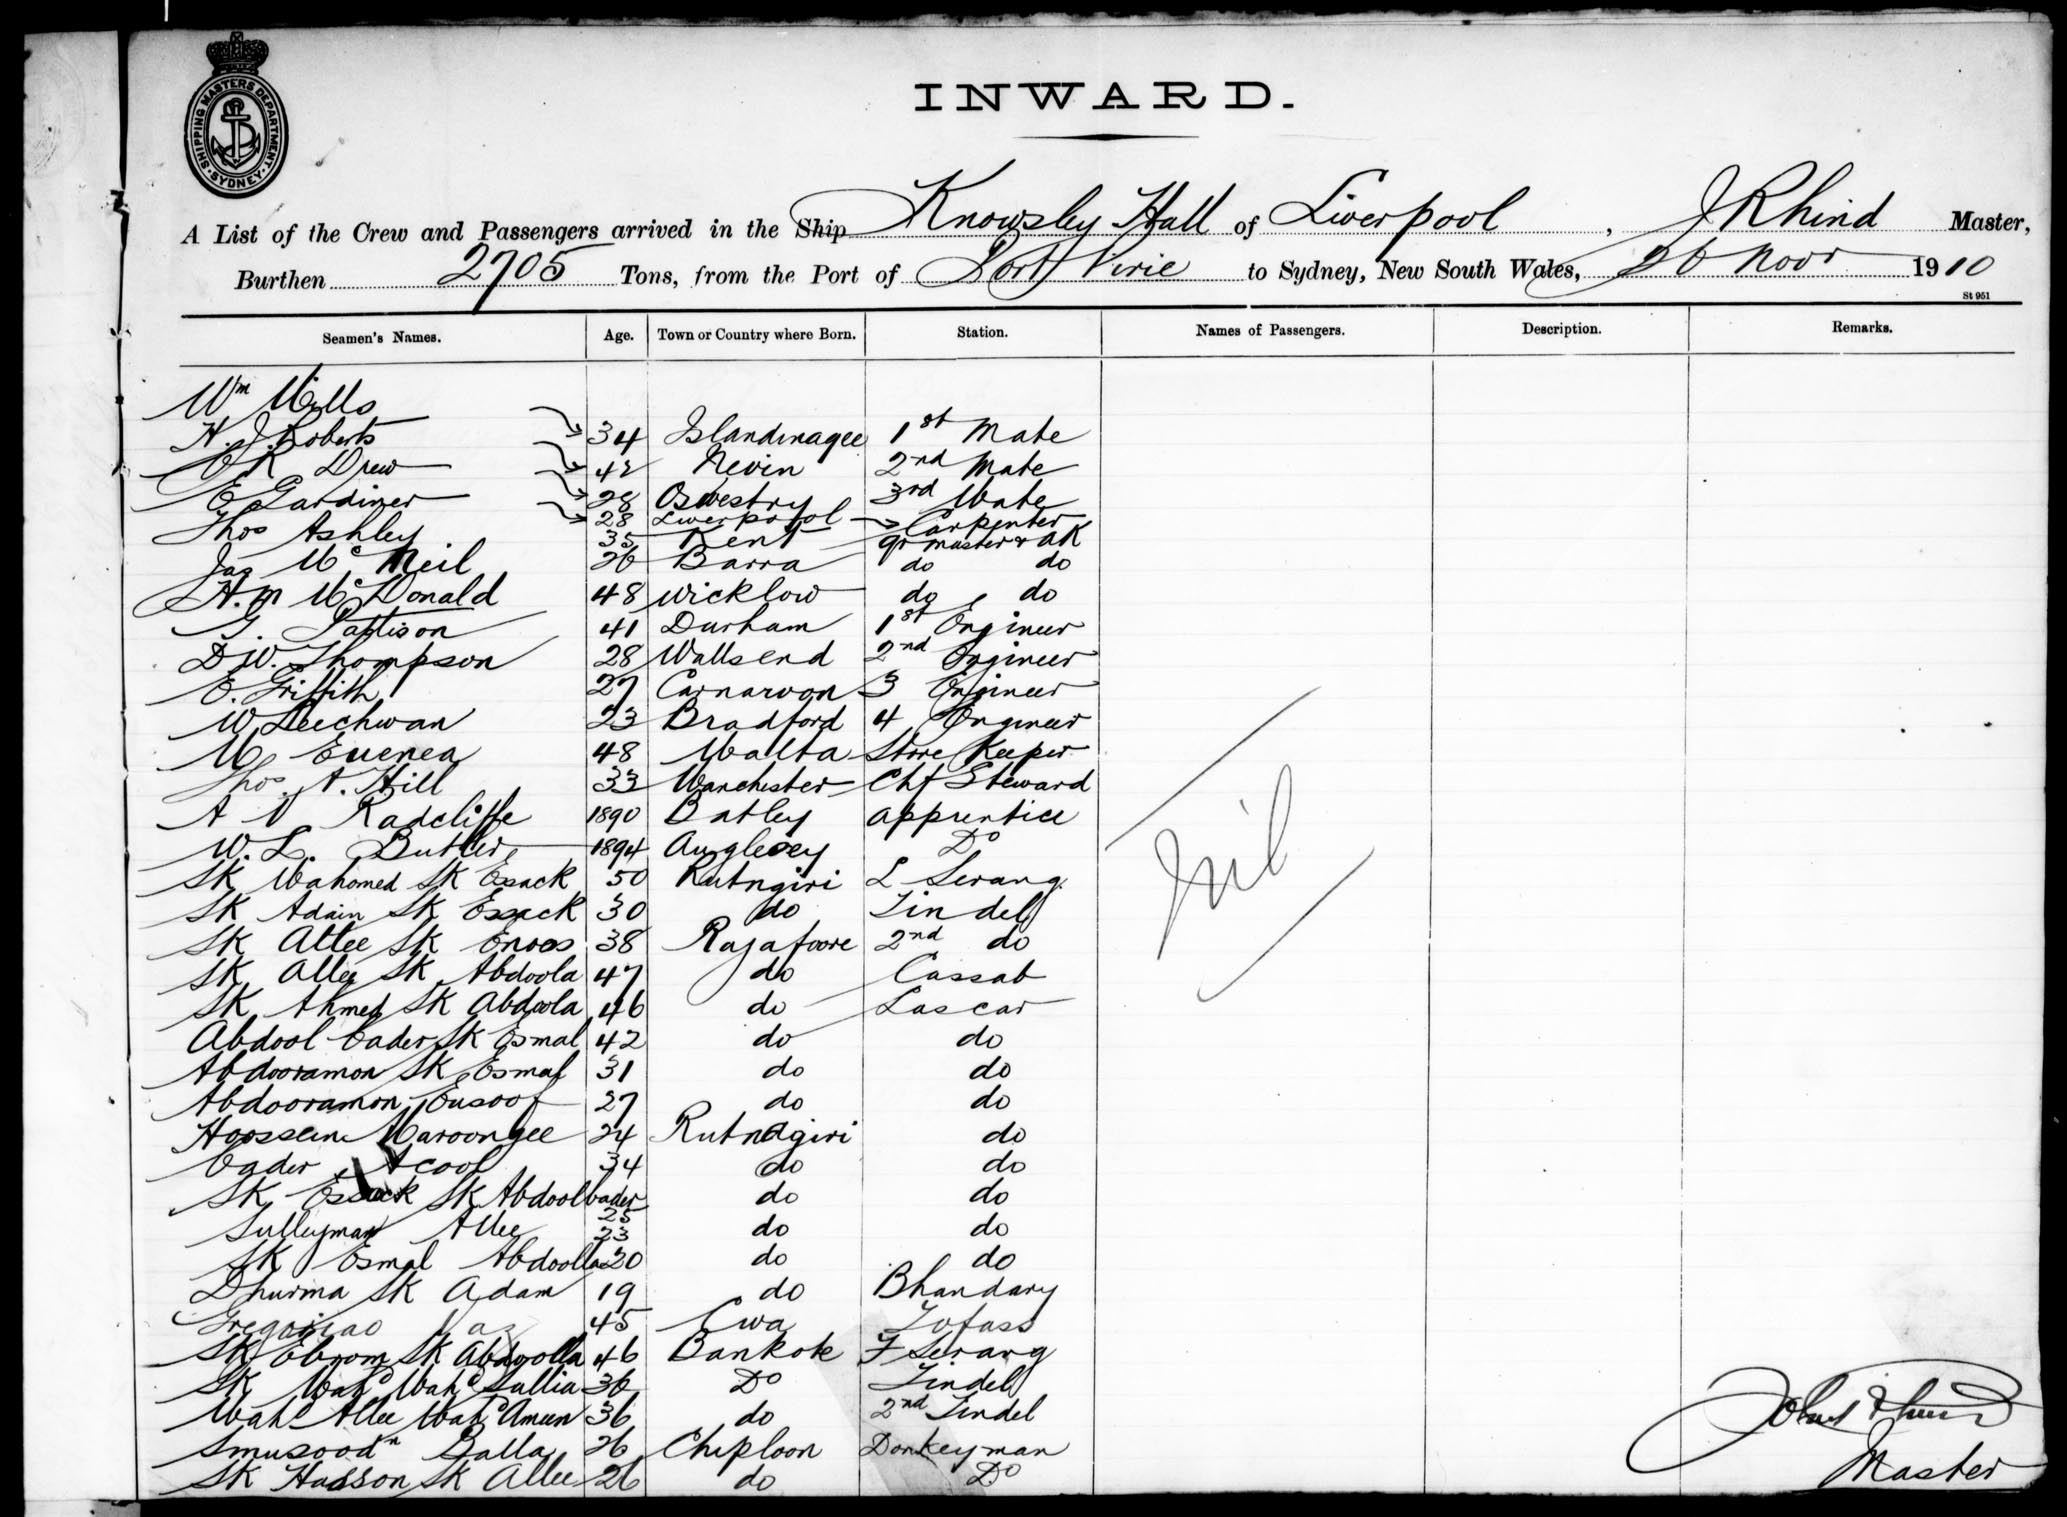 SHIPPING MASTERS DEPARTMENT. SYDNEY.
INWARD.
A List of the Crew and Passengers arrived in the Ship Knowsley Hall of Liverpool, J Rhind Master,
Burthen 2705 Tons, from the Port of Port Pirie to Sydney, New South Wales, 26 Novr 1910
St 951
Seamen's Names. Age. Town or Country where Born. Station. Names of Passengers. Description. Remarks.
Wm Mills
H. J. Roberts 34 Islandmagee 1st Mate
O R Drew 42 Nevin 2nd Mate
E Gardiner 28 Oswestry 3rd Mate
Thos Ashley 28 Liverpool Carpenter
Jas Mc Neil 35 Kent qr master & AK
26 Barra do do
H. M Mc Donald 48 Wicklow do do
G. Pattison 41 Durham 1st Engineer
D W. Thompson 28 Wallsend 2nd Engineer
E. Griffith 27 Carnarvon 3 Engineer
W Leechwan 23 Bradford 4 Engineer
M Euenea 48 Malta Store Keeper
Thos. A. Hill 33 Manchester Chf Steward
A V Radcliffe 1890 Batley apprentice
W. L. Butler 1894 Anglesey Do
SK Mahomed SK Esack 50 Rutngiri L Serang
SK Adam SK Essack 30 do Tindel
SK Allee SK Enoos 38 Rajafoore 2nd do
SK Allee SK Abdoola 47 do Cassab
SK Ahmed SK Abdoola 46 do Lascar
Abdool Cader SK Esmal 42 do do
Abdooramon SK Esmal 31 do do
Abdooramon Eusoof 27 do do
Hoossein Maroongee 24 Rutnagiri do
Cader Acool 34 do do
SK Essack SK Abdool Cader 25 do do
Sulleyman Allee 23 do do
SK Esmal Abdoolla 20 do do
Dhurma SK Adam 19 do Bhandary
Gregoriao Vaz 45 Topass
SK Ebrom SK Abdoolla 46 Bankote F Serang
SK Mahd Mahd Sallia 36 Do Tindel
Mahd Allee Mahd Ameen 36 do 2nd Tindel
Smusoodn Balla 26 Chiploon Donkeyman
SK Hasson SK Allee 26 do Do
Nil
John Rhind
Master